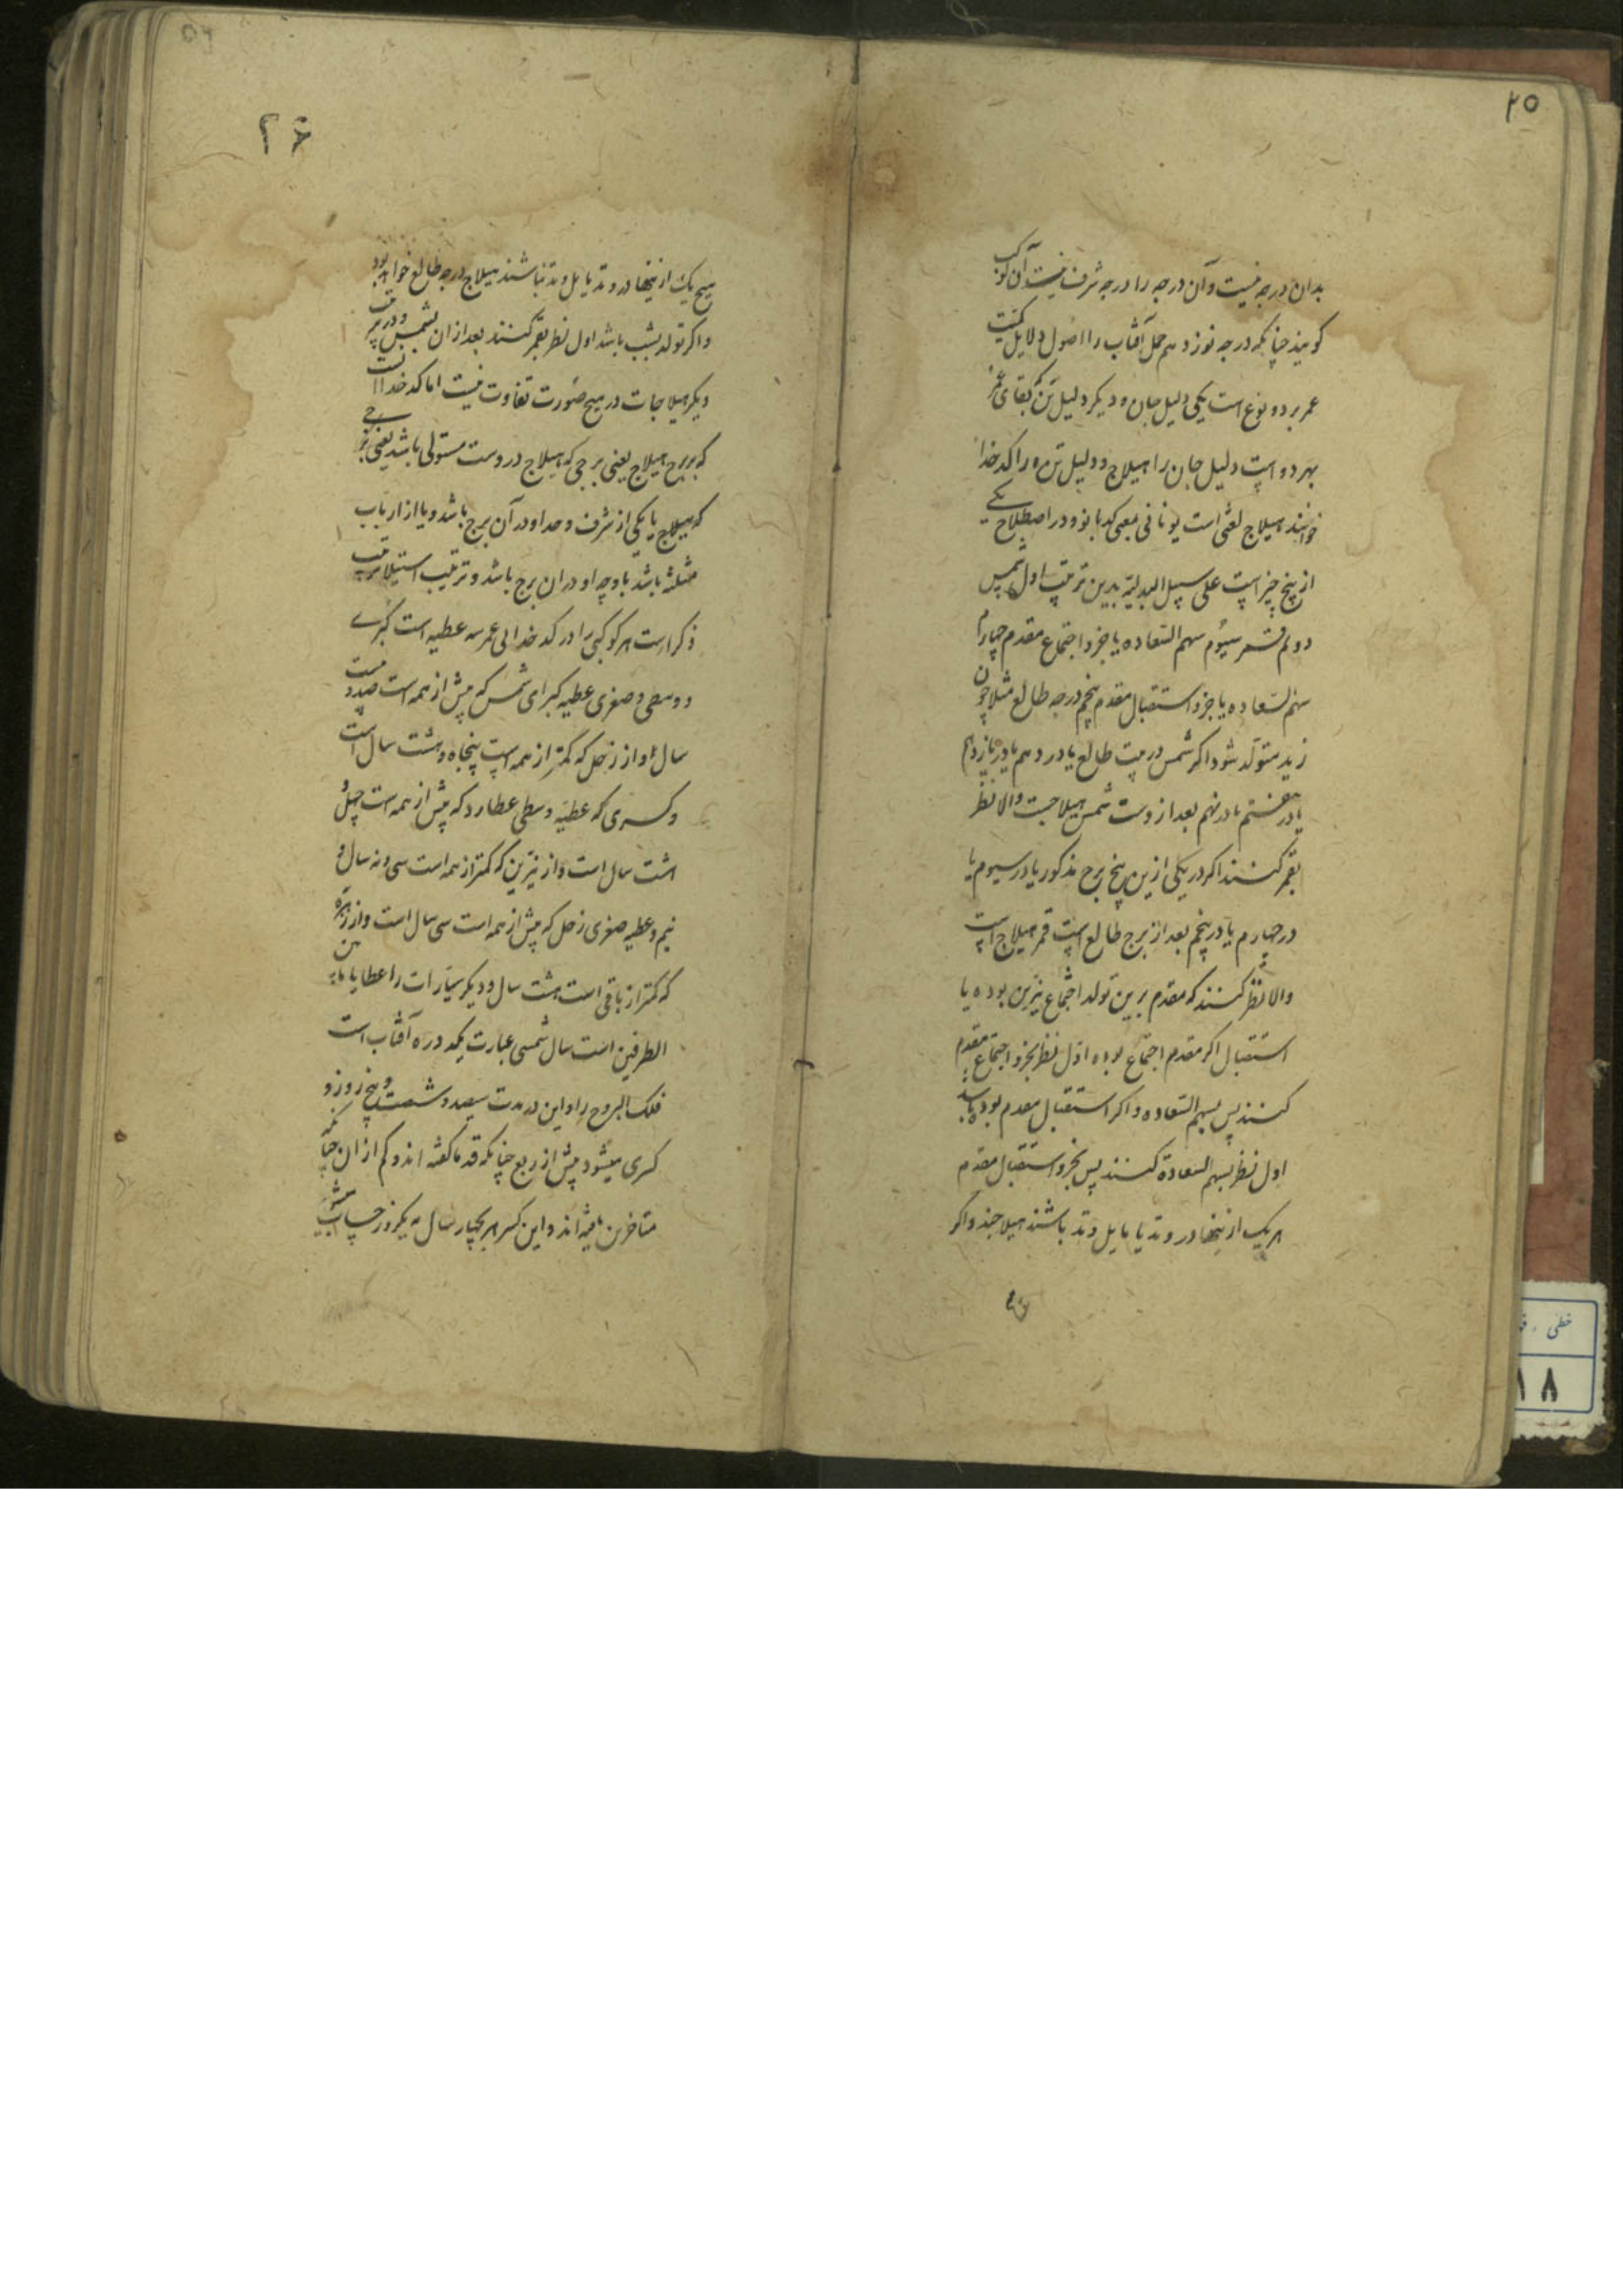 ۲۵
بدان درجه نیست و آن درجه را درجه شرف نیست آن کوکب
گویند چنانکه درجه نوزدهم حمل آفتاب را اصول دلایل کمیت
عمر بر دو نوع است یکی دلیل جان و دیگر دلیل تن که بقای عمر
بهر دو است دلیل جان را هیلاج و دلیل تن را کدخدا
خوانند هیلاج لغتی است یونانی بمعنی کدبانو و در اصطلاح یکی
از پنج چیز است علی سبیل البدلیة بدین ترتیب اول شمس
دوم قمر سیوم سهم السعاده یا جزو اجتماع مقدم چهارم
سهم السعاده یا جزو استقبال مقدم پنجم درجه طالع مثلا چون
زید متولد شود اگر شمس در بیت طالع یا در دهم یا در یازدهم
یا در هفتم یا در نهم بعد از وست شمس هیلاجست والا نظر
بقمر کنند اگر در یکی ازین پنج برج مذکور یا در سیوم یا
در چهارم یا در پنجم بعد از برج طالع است قمر هیلاج است
والا نظر کنند که مقدم برین تولد اجتماع نیرین بوده یا
استقبال اگر مقدم اجتماع بوده اول نظر بجزو اجتماع مقدم
کنند پس بسهم السعاده و اگر استقبال مقدم بوده باشد
اول نظر بسهم السعادة کنند پس بجزو استقبال مقدم
هر یک ازینها در وتد یا مایل وتد باشند هیلاجند و اگر
۲۶
هیچ یک ازینها در وتد یا مایل وتد نباشند هیلاج درجه طالع خواهد بود
و اگر تولد بشب باشد اول نظر بقمر کنند بعد از ان بشمس و در ترتیب
دیگر هیلاجات در هیچ صورت تفاوت نیست اما کدخدا آنست
که بر برج هیلاج یعنی برجی که هیلاج دروست مستولی باشد یعنی برجی
که هیلاج یا یکی از شرف و حد او در آن برج باشد و یا از ارباب
مثلثه باشد یا وجه او در ان برج باشد و ترتیب استیلا ترتیب
ذکر است هر کوکبی را در کدخدایی عمر سه عطیه است کبری
و وسطی و صغری عطیه کبرای شمس که بیش از همه است صد و بیست
سال و از زحل که کمتر از همه است پنجاه و هشت سال است
و کسری که عطیه وسطی عطارد که بیش از همه است چهل و
هشت سال است و از نیرین که کمتر از همه است سی و نه سال و
نیم و عطیه صغری زحل که بیش از همه است سی سال است و از زهره
که کمتر از باقی است هشت سال و دیگر سیارات را عطایا مابین
الطرفین است سال شمسی عبارت یکدوره آفتاب است
فلک البروج را و این در مدت سیصد و شصت و پنج روز و
کسری میشود بیش از ربع چنانکه قدما گفته اند و کم از ان چنانکه
متاخرین یافته اند و این کسر هر بچهار سال به یکروز حساب میشود